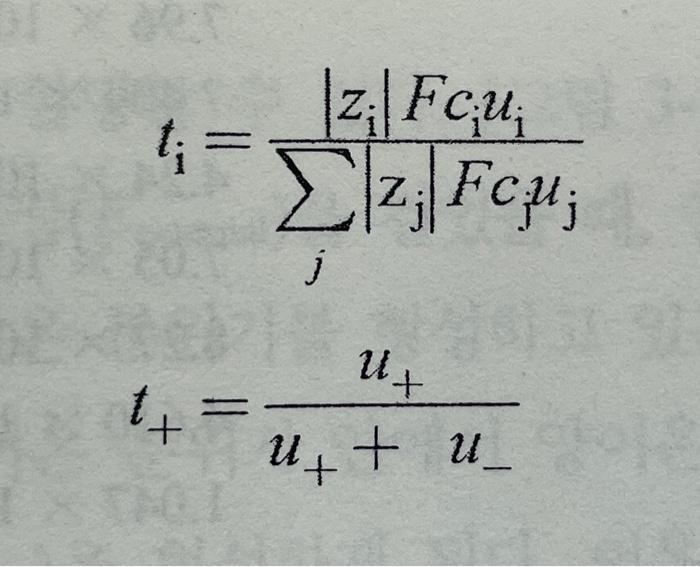 t_i = |z_i| Fc_iu_i / ∑_j |z_j| Fc_ju_j
t_+ = u_+ / u_+ + u_−